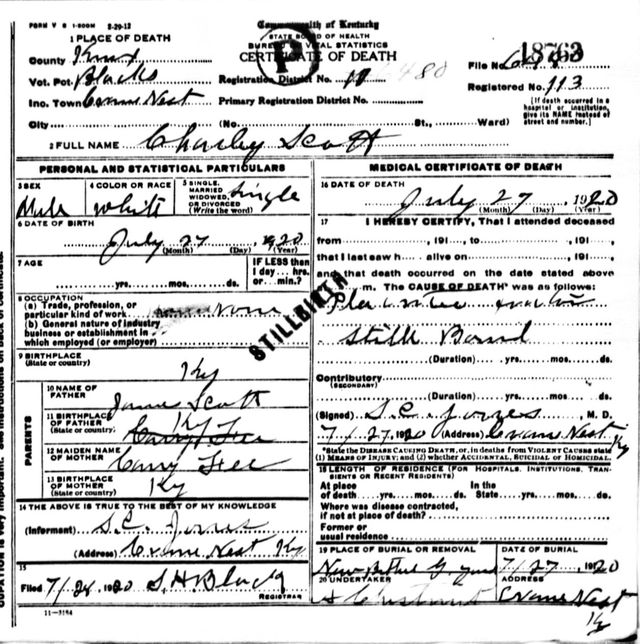 FORM V S 1-500M 2-29-12
Commonwealth of Kentucky
STATE BOARD OF HEALTH
BUREAU VITAL STATISTICS
CERTIFICATE OF DEATH
P
1 PLACE OF DEATH
County Knox
Vot. Pct. Blacks
Inc. Town Crane Nest
City (No. St., Ward)
Registration District No.
Primary Registration District No.
18763
File No.
Registered No. 113
[If death occurred in a hospital or institution, give its NAME instead of street and number.]
2 FULL NAME Charley Scott
PERSONAL AND STATISTICAL PARTICULARS
3 SEX
Male
4 COLOR OR RACE
white
5 SINGLE, MARRIED, WIDOWED, OR DIVORCED (Write the word) Single
6 DATE OF BIRTH
July 27 1920
(Month) (Day) (Year)
7 AGE
yrs. mos. ds.
IF LESS than 1 day ... hrs. or min.?
8 OCCUPATION
(a) Trade, profession, or particular kind of work none
(b) General nature of industry business or establishment in which employed (or employer)
STILLBIRTH
9 BIRTHPLACE
(State or country)
Ky
PARENTS
10 NAME OF FATHER
James Scott
11 BIRTHPLACE OF FATHER
(State or country)
Ky
12 MAIDEN NAME OF MOTHER
Carry Fee
13 BIRTHPLACE OF MOTHER
(State or country)
Ky
14 THE ABOVE IS TRUE TO THE BEST OF MY KNOWLEDGE
(Informant) S.C. Jones
(Address) Crane Nest Ky
15
Filed 1920 S.H. Black
REGISTRAR
11-3184
MEDICAL CERTIFICATE OF DEATH
16 DATE OF DEATH
July 27 1920
(Month) (Day) (Year)
17 I HEREBY CERTIFY, That I attended deceased
from , 191 , to , 191 ,
that I last saw h alive on , 191 ,
and that death occurred on the date stated above
m. The CAUSE OF DEATH* was as follows:
Still Born
(Duration) yrs. mos. ds.
Contributory
(SECONDARY)
(Duration) yrs. mos. ds.
(Signed) S.C. Jones, M. D.
7/27, 1920 (Address) Crane Nest Ky
*State the DISEASE CAUSING DEATH, or, in deaths from VIOLENT CAUSES state
(1) MEANS OF INJURY; and (2) whether ACCIDENTAL, SUICIDAL or HOMICIDAL.
18 LENGTH OF RESIDENCE (FOR HOSPITALS, INSTITUTIONS, TRANSIENTS OR RECENT RESIDENTS)
At place of death yrs. mos. ds. In the State yrs. mos. ds.
Where was disease contracted, if not at place of death?
Former or usual residence
19 PLACE OF BURIAL OR REMOVAL
DATE OF BURIAL
7/27, 1920
20 UNDERTAKER
ADDRESS
Crane Nest
Ky